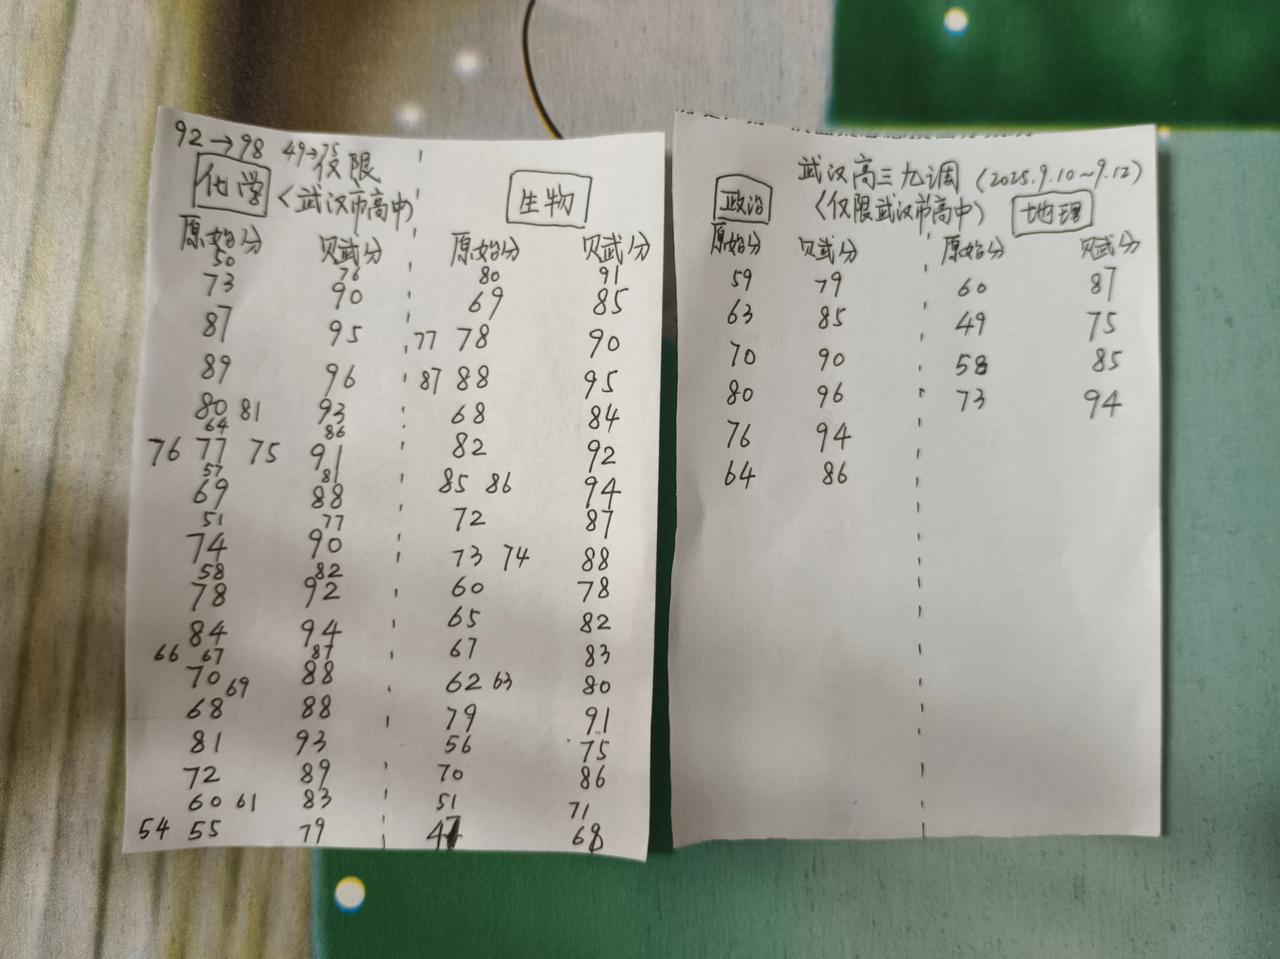 92→98 49→75 仅限
化学 〈武汉市高中〉 生物
原始分 贝武分 原始分 贝武分
50 76 80 91
73 90 69 85
87 95 77 78 90
89 96 87 88 95
80 81 93 68 84
64 86
76 77 75 91 82 92
57 81
69 88 85 86 94
51 77 72 87
74 90 73 74 88
58 82
78 92 60 78
84 94 65 82
66 67 87 67 83
70 69 88 62 63 80
68 88 79 91
81 93 56 75
72 89 70 86
60 61 83 51 71
54 55 79 47 68
武汉高三九调（2025.9.10~9.12）
政治 〈仅限武汉市高中〉 地理
原始分 贝武分 原始分 贝武分
59 79 60 87
63 85 49 75
70 90 58 85
80 96 73 94
76 94
64 86